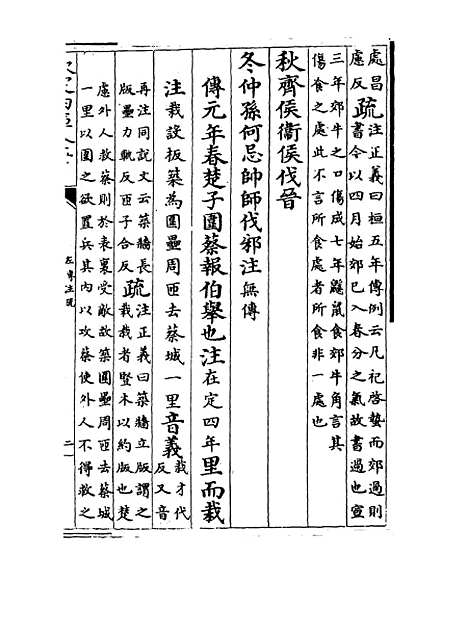 處昌慮反疏注正義曰桓五年傳例云凡祀啓蟄而郊過則
書今以四月始郊已入春分之氣故書過也宣
三年郊牛之口傷成七年鼷鼠食郊牛角言其
傷食之處此不言所食處者所食非一處也
秋齊侯衞侯伐晉
冬仲孫何忌帥師伐邾注無傳
傳元年春楚子圍蔡報伯舉也注在定四年里而栽
注栽設板築為圍壘周匝去蔡城一里音義栽才代
反又音
再注同說文云築牆長
版壘力軌反匝子合反疏注正義曰築牆立版謂之
栽栽者豎木以約版也楚
慮外人救蔡則於表裏受敵故築圍壘周匝去蔡城
一里以圍之欲置兵其內以攻蔡使外人不得救之
左傳注疏